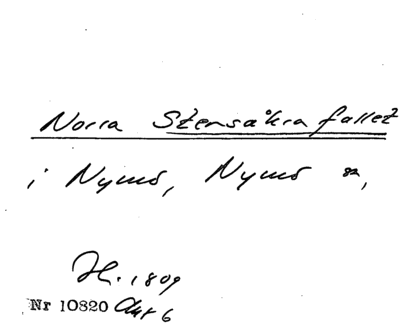 Norra Stensåkra fallet
i Nymö, Nymö sn,
H. 1809
Nr 10820 Akt 6